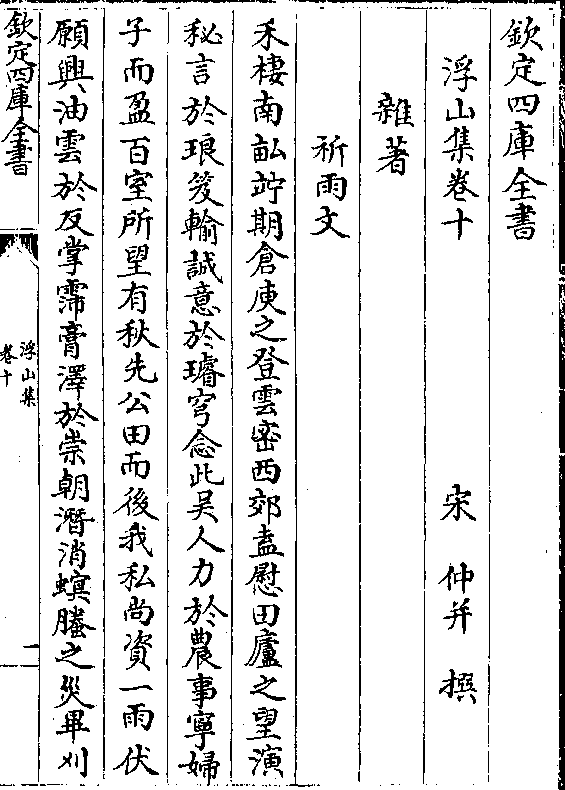 欽定四庫全書
浮山集卷十　宋　仲并　撰
雜著
祈雨文
禾棲南畝竚期倉庾之登雲密西郊盍慰田廬之望演
秘言於琅笈輸誠意於璿穹念此吴人力於農事寧婦
子而盈百室所望有秋先公田而後我私尚資一雨伏
願興油雲於反掌霈膏澤於崇朝潛消螟螣之災畢刈
欽定四庫全書
浮山集
卷十
一